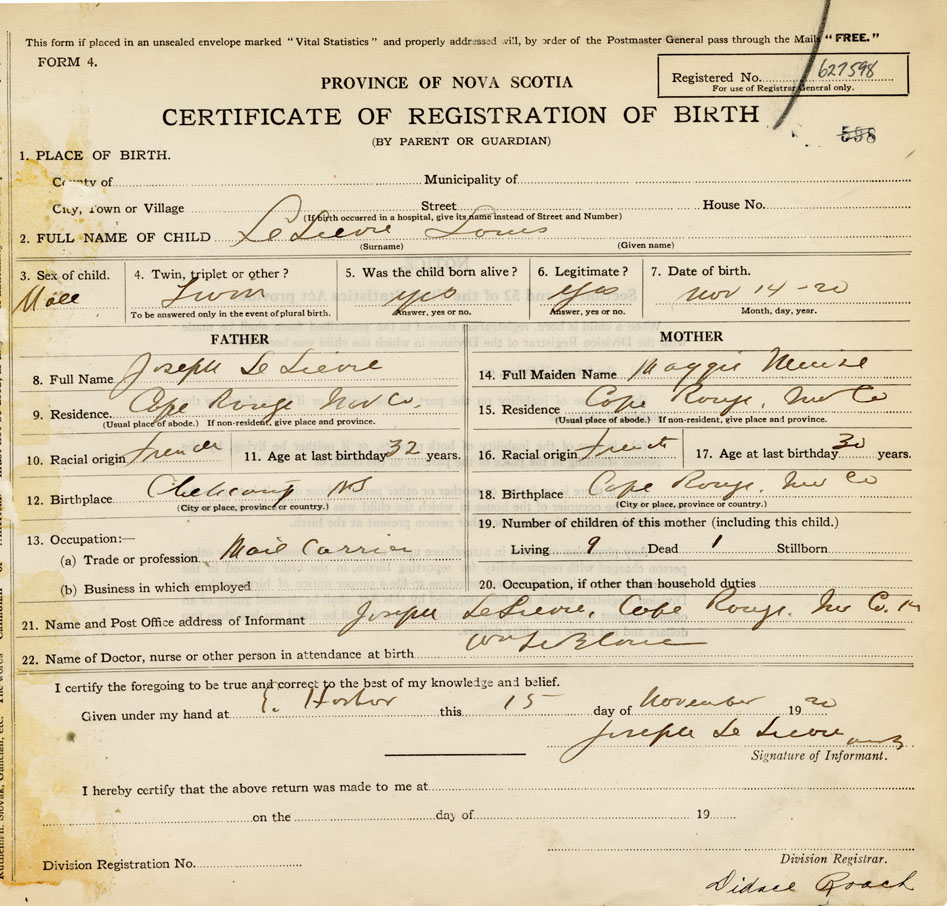 This form if placed in an unsealed envelope marked "Vital Statistics" and properly addressed will, by order of the Postmaster General pass through the Mails "FREE."
FORM 4.
Registered No. 627598
For use of Registrar General only.
PROVINCE OF NOVA SCOTIA
CERTIFICATE OF REGISTRATION OF BIRTH
(BY PARENT OR GUARDIAN)
598
1. PLACE OF BIRTH.
County of Municipality of
City, Town or Village Street House No.
(If birth occurred in a hospital, give its name instead of Street and Number)
2. FULL NAME OF CHILD LeLievre Louis
(Surname) (Given name)
3. Sex of child. 4. Twin, triplet or other? 5. Was the child born alive? 6. Legitimate? 7. Date of birth.
Male Twin yes yes Nov 14-20
To be answered only in the event of plural birth. Answer, yes or no. Answer, yes or no. Month, day, year.
FATHER MOTHER
8. Full Name Joseph Le Lievre 14. Full Maiden Name Maggie Muise
9. Residence. Cape Rouge Inv Co. 15. Residence Cape Rouge, Inv Co
(Usual place of abode.) If non-resident, give place and province. (Usual place of abode.) If non-resident, give place and province.
10. Racial origin French 11. Age at last birthday 32 years. 16. Racial origin French 17. Age at last birthday 30 years.
12. Birthplace Cheticamp NS 18. Birthplace Cape Rouge, Inv Co
(City or place, province or country.) (City or place, province or country.)
13. Occupation:— 19. Number of children of this mother (including this child.)
(a) Trade or profession Mail Carrier Living 9 Dead 1 Stillborn
(b) Business in which employed 20. Occupation, if other than household duties
21. Name and Post Office address of Informant Joseph LeLievre, Cape Rouge, Inv Co.
22. Name of Doctor, nurse or other person in attendance at birth LeBlanc
I certify the foregoing to be true and correct to the best of my knowledge and belief.
Given under my hand at E. Harbor this 15 day of November 1920
Joseph Le Lievre
Signature of Informant.
I hereby certify that the above return was made to me at
on the day of 19
Division Registration No.
Division Registrar.
Didace Roach